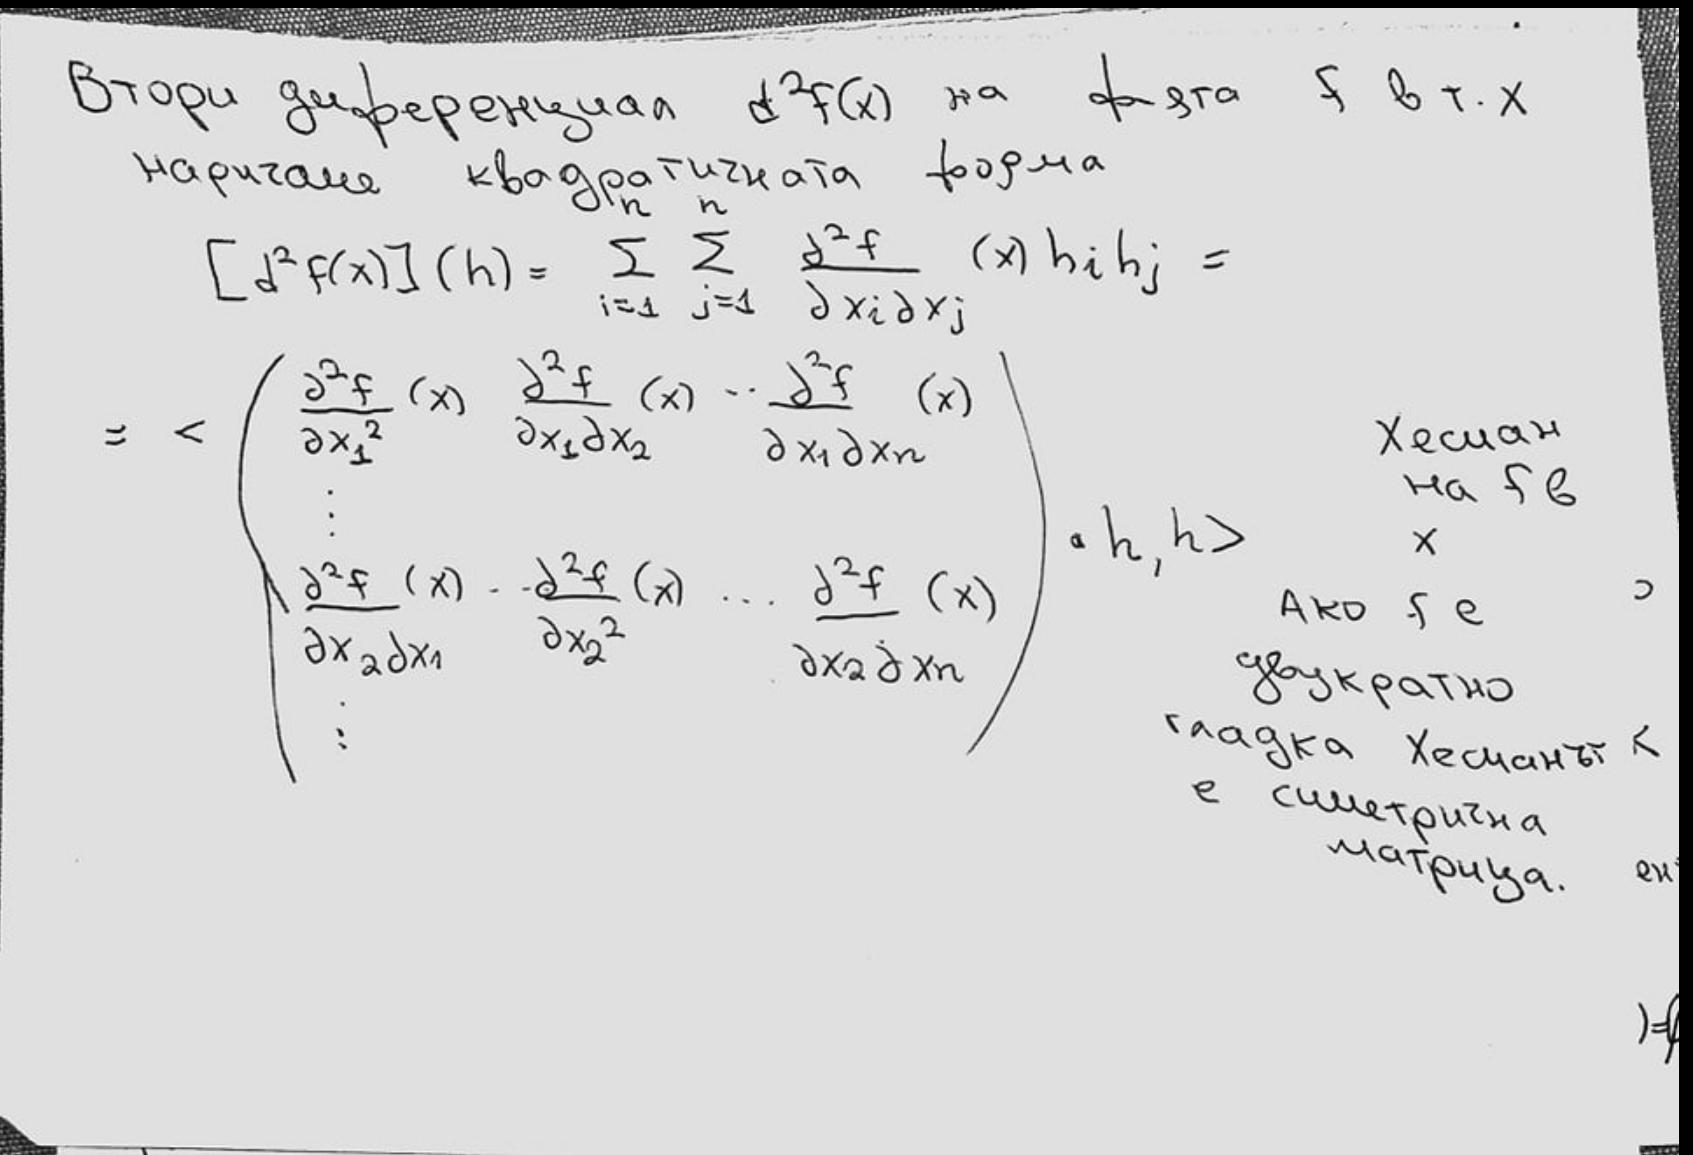 Втори диференциал d²f(x) на ф-ята f в т. x
наричаме квадратичната форма
[d²f(x)](h) = ∑_{i=1}^{n} ∑_{j=1}^{n} ∂²f/∂xi∂xj (x) hi hj =
= < ( ∂²f/∂x₁² (x) ∂²f/∂x₁∂x₂ (x) ... ∂²f/∂x₁∂xn (x)
⋮
∂²f/∂x₂∂x₁ (x) ... ∂²f/∂x₂² (x) ... ∂²f/∂x₂∂xn (x)
⋮ ) · h, h>
Хесиан
на f в
x
Ако f е
двукратно
гладка Хесианът
е симетрична
матрица.